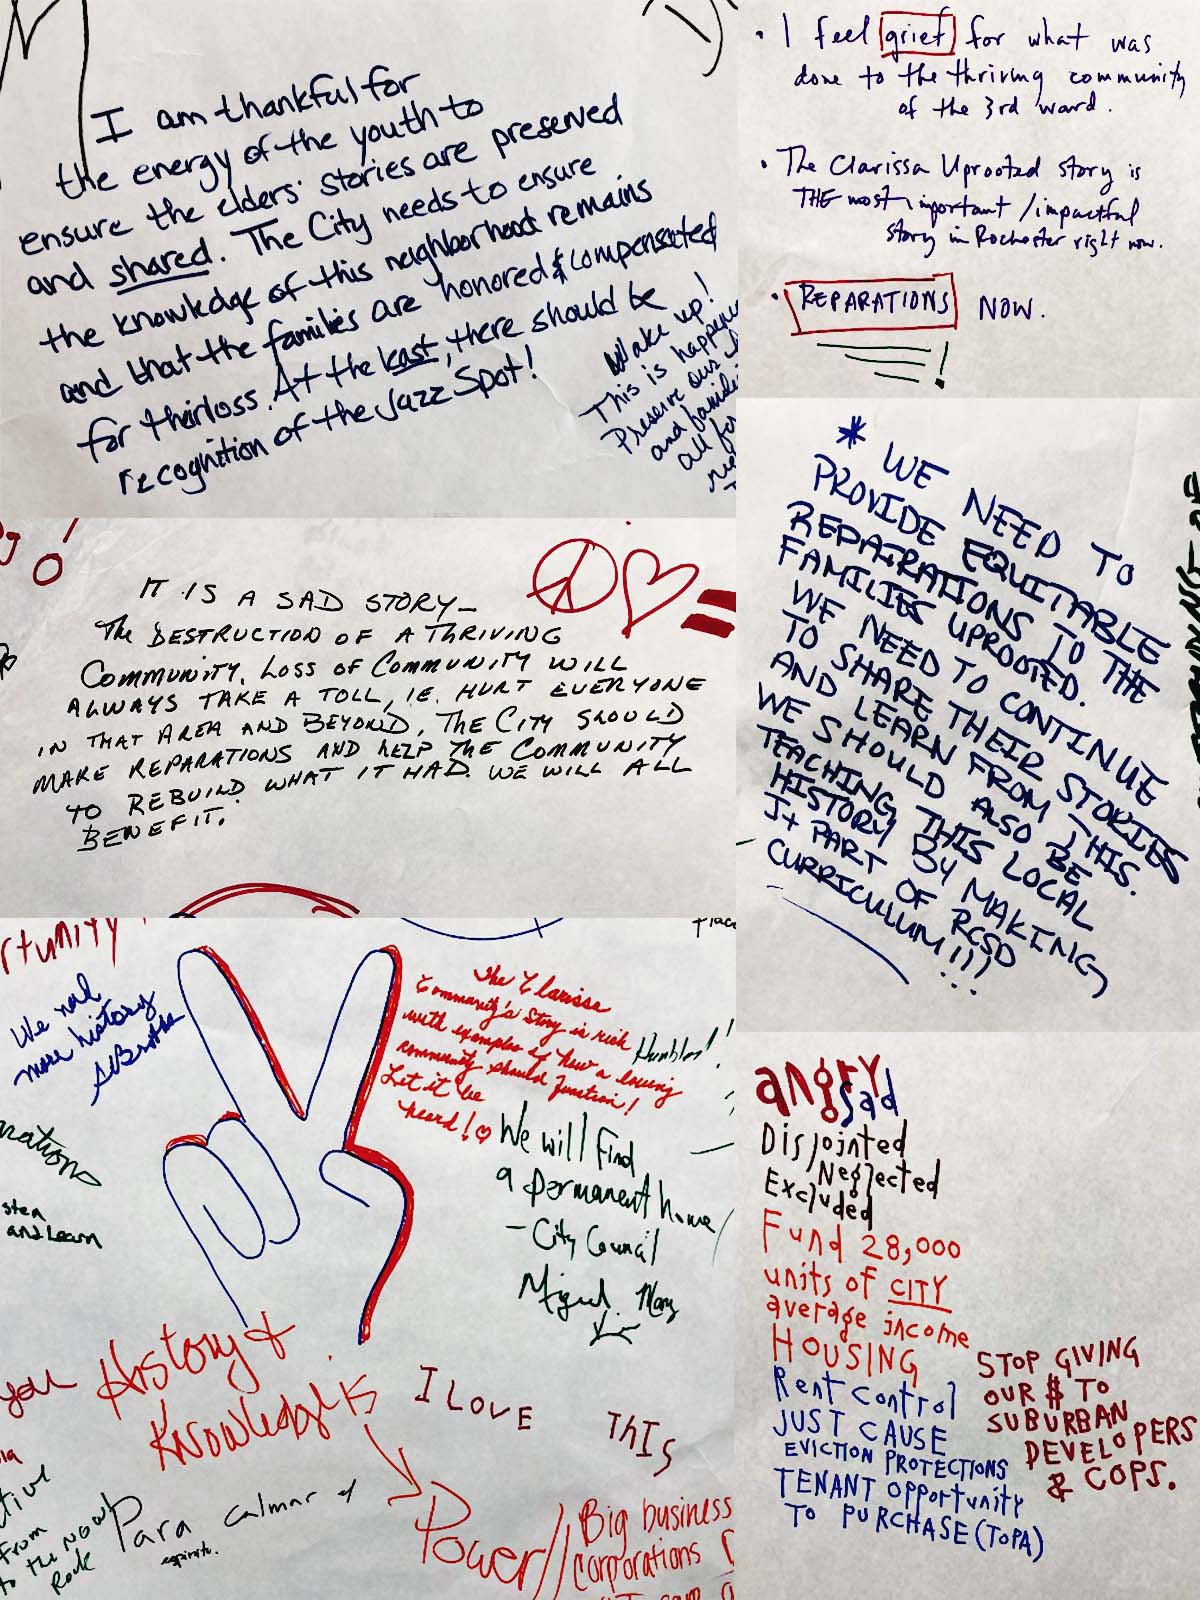 I am thankful for
the energy of the youth to
ensure the elders' stories are preserved
and shared. The City needs to ensure
the knowledge of this neighborhood remains
and that the families are honored & compensated
for their loss. At the least, there should be
recognition of the Jazz Spot!
Wake up!
This is
Preserve our
and
all
• I feel grief for what was
done to the thriving community
of the 3rd ward.
• The Clarissa Uprooted story is
THE most important/impactful
story in Rochester right now.
• REPARATIONS NOW.
!
IT IS A SAD STORY –
The DESTRUCTION OF A THRIVING
COMMUNITY. LOSS OF COMMUNITY WILL
ALWAYS TAKE A TOLL, IE. HURT EVERYONE
IN THAT AREA AND BEYOND. THE CITY SHOULD
MAKE REPARATIONS AND HELP THE COMMUNITY
TO REBUILD WHAT IT HAD. WE WILL ALL
BENEFIT.
* WE NEED TO
PROVIDE EQUITABLE
REPAIRATIONS TO THE
FAMILIES UPROOTED.
WE NEED TO CONTINUE
TO SHARE THEIR STORIES
AND LEARN FROM THIS.
WE SHOULD ALSO BE
TEACHING THIS LOCAL
HISTORY BY MAKING
IT PART OF RCSD
CURRICULUM!!!
rtunity
We
more history
The Clarissa
Community's Story is rich
with examples of how a loving
community should function!
Let it be
heard!
Humbled!
We will find
a permanent home
– City Council
Miguel
and Learn
you
History &
Knowledge is
Power
I LOVE THIS
tive
From
to the NOW!
Rock
Para calmar el
espiritu.
Big business
corporations
angry
Sad
Disjointed
Neglected
Excluded
Fund 28,000
units of CITY
average income
HOUSING
Rent control
JUST CAUSE
EVICTION PROTECTIONS
TENANT opportunity
To PURCHASE (ToPA)
STOP GIVING
OUR $ TO
SUBURBAN
DEVELOPERS
& COPS.